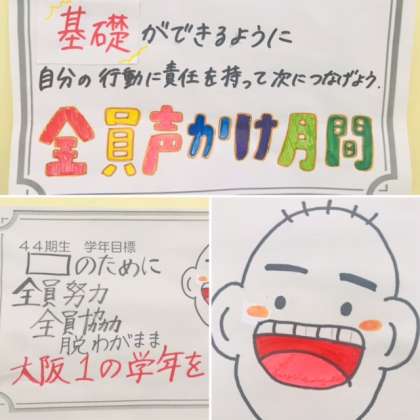 基礎ができるように
自分の行動に責任を持って次につなげよう.
全員声かけ月間
44期生 学年目標
のために
全員努力
全員協力
脱わがまま
大阪1の学年を